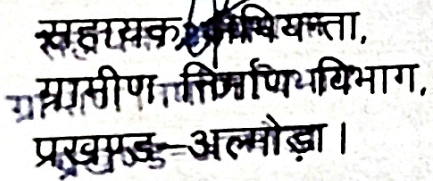 सहायक अभियन्ता,
ग्रामीण निर्माण विभाग,
प्रखण्ड-अल्मोड़ा।